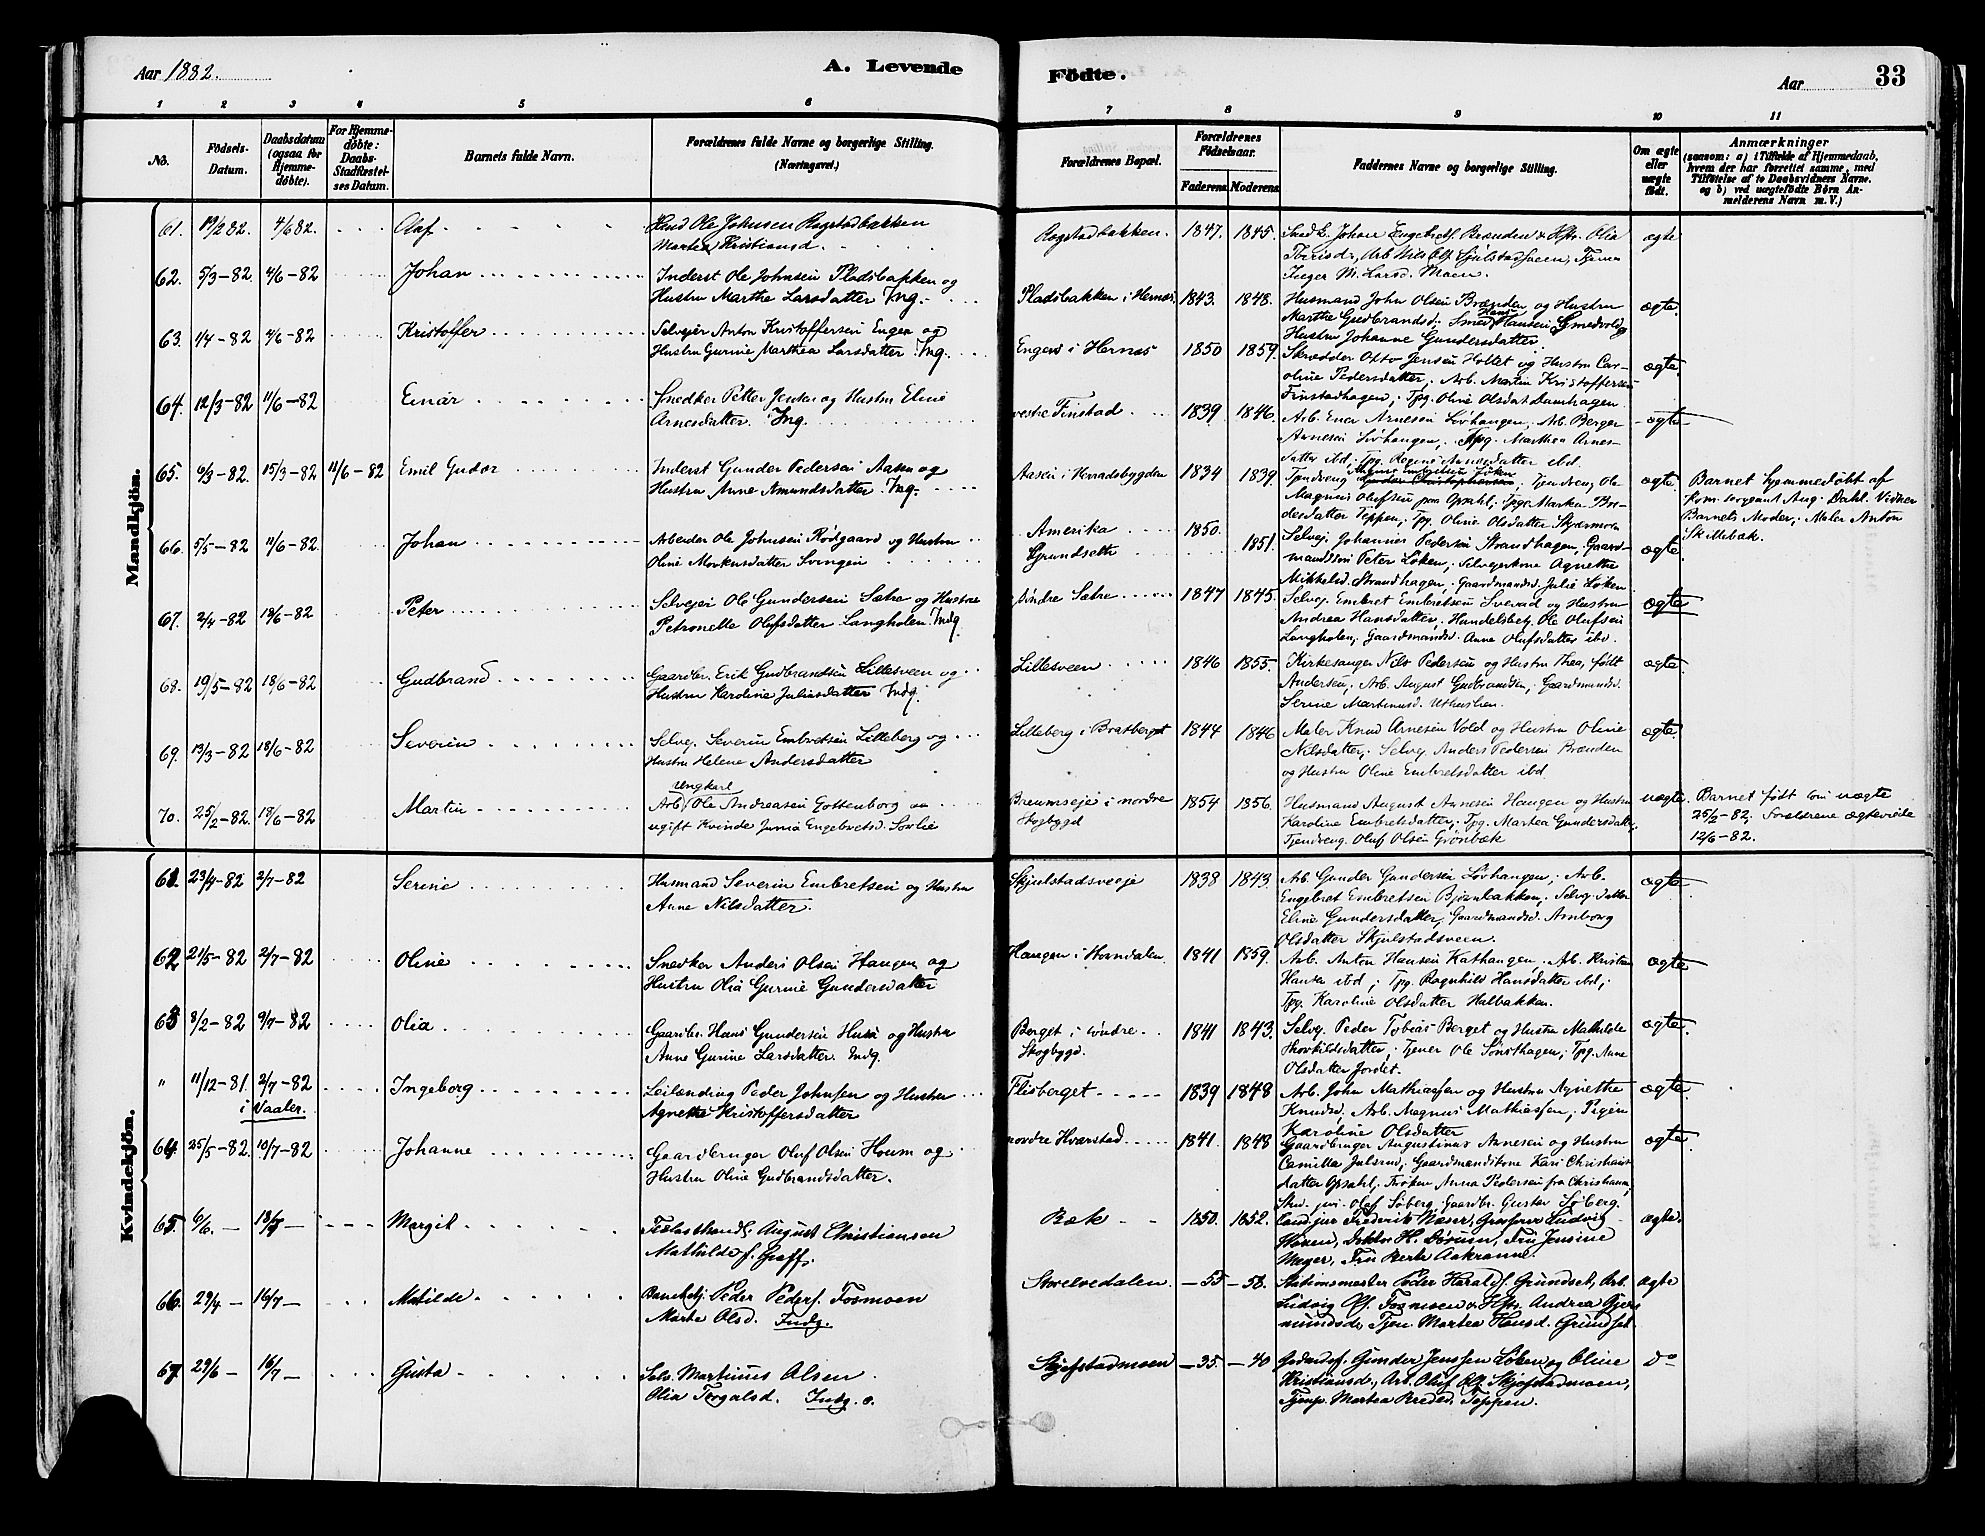 Aar 1882.
A. Levende
Födte.
Aar
33
1 2 3 4 5 6 7 8 9 10 11
No.
Födsels-
Datum.
Daabsdatum
(ogsaa for
Hjemme-
döbte).
For Hjemme-
döbte:
Daabs-
Stadfæstel-
ses Datum.
Barnets fulde Navn.
Forældrenes fulde Navne og borgerlige Stilling.
(Næringsvei.)
Forældrenes Bopæl.
Forældrenes
Födselsaar.
Faderens. Moderens.
Faddernes Navne og borgerlige Stilling.
Om ægte
eller
uægte
födt.
Anmærkninger
(saasom: a) i Tilfælde af Hjemmedaab,
hvem der har forrettet samme, med
Tilföielse af to Daabsvidners Navne.
og b) ved uægtefödte Börn An-
melderens Navn m. V.)
Mandkjön.
61. 19/2 82. 4/6 82. Olaf Ole Johnsen Rogstadbakken
Marthea Kristiansd.
Rogstadbakken. 1847. 1845. ægte
62. 5/3-82. 4/6-82 Johan Inderst Ole Johnsen Pladsbakken og
Hustru Marthe Larsdatter Ing.
Pladsbakken i Hernæs. 1843. 1848. Husmand John Olsen Brænden og Hustru
Marthe Gudbrandsd; Smed Hansen Smedvold og
Hustru Johanne Gundersdatter.
ægte.
63. 1/4-82 4/6-82 Kristoffer Selveier Anton Kristoffersen Engen og
Hustru Gurine Marthea Larsdatter Ing.
Engen i Hernæs 1850 1859. Skredder Otto Jensen Holtet og Hustru Car-
oline Pedersdatter; Arb. Martin Kristoffersen
Finstadhagen; Tpg. Oline Olsdat Damhagen
ægte.
64. 12/3-82 11/6-82 Einar Snedker Petter Jensen og Hustru Eline
Arnesdatter. Ing.
vestre Finstad 1839 1846. Arb. Ener Arnesen Lövhaugen; Arb. Berger
Arnesen Lövhaugen; Tpg. Marthea Arnes-
datter ibd; Tpg. Regine Arnesdatter ibd.
ægte
65. 6/3-82. 15/3-82 11/6-82 Emil Gudor Inderst Gunder Pedersen Aasen og
Hustru Anne Amundsdatter Ing.
Aasen i Heradsbygden 1834 1839. Magnus Olufsen paa Opsahl; Tpge Marthea Pe-
dersdatter Teppen; Tpg. Oline Olsdatter Skjærmoen
ægte. Barnet hjemmedöbt af
Kom. sergeant Aug. Dahl. Vidner
Barnets Moder; Maler Anton
Skillebæk.
66. 5/5-82 11/6-82. Johan Arbeider Ole Johnsen Rödgaard og Hustru
Oline Morkensdatter Svingen
Amerika 1850.
Grundseth 1851. Selvej. Johannes Pedersen Strandhagen, Gaard-
mandssön Peter Löken; Selveierkone Agnethe
Mikkelsd. Strandhagen; Gaardmandsd. Julie Löken
ægte.
67. 2/4-82 18/6-82 Peter Selveier Ole Gundersen Sætre og Hustru
Petronelle Olufsdatter Langholen. Indg.
söndre Sætre 1847 1845. Selvej. Embret Embretsen Svevad og Hustru
Andrea Hansdatter; Handelsbetj. Ole Olufsen
Langholen; Gaardmandsd. Anne Olufsdatter ibd.
ægte
68. 19/5-82 18/6-82 Gudbrand Gaardbr. Erik Gudbrandsen Lillesveen og
Hustru Karoline Juliusdatter Indg.
Lillesveen 1846 1855. Kirkesanger Nils Pedersen og Hustru Thea, födt
Andersen; Arb. August Gudbrandsen; Gaardmandsd.
Serine Martinusd. Uthuslien.
ægte
69. 13/3-82 18/6-82 Severin Selvej. Severin Embretsen Lilleberg og
Hustru Helene Andersdatter
Lilleberg i Bratberget 1844 1846 Maler Knud Arnesen Vold og Hustru Oline
Nilsdatter; Selvej Anders Pedersen Brænden
og Hustru Oline Embretsdatter ibd
ægte.
70. 25/2-82. 18/6-82 Martin Ungkarl
Arb. Ole Andreasen Gottenborg og
ugift Kvinde Junia Engebretsd. Sorlie
Breumseje i nordre
Skogbygd
1854 1856. Husmand August Arnesen Haugen og Hustru
Karoline Embretsdatter; Tpg. Marthea Gundersdatter,
Tjendreng. Oluf Olsen Grönbæk
uægte. Barnet födt som uægte
25/2-82. Forældrene ægteviede
12/6-82.
Kvindekjön.
61. 23/4-82 2/7-82 Serine Husmand Severin Embretsen og Hustru
Anne Nilsdatter.
Skjulstadsveeje 1838 1843. Arb. Gunder Gundersen Lövhaugen; Arb.
Engebret Embretsen Björnbakken; Selvejdatter
Eline Gundersdatter, Gaardmandsd. Amborg
Olsdatter Skjulstadsveen.
ægte
62 21/5-82 2/7-82 Oline Snedker Anders Olsen Haugen og
Hustru Olia Gurine Gundersdatter
Haugen i Horndalen 1841 1859. Arb. Anton Hansen Kathaugen. Arb. Kristian
Hansen ibd; Tpg. Ragnhild Hansdatter ibd;
Tpg. Karoline Olsdatter Halbakken.
ægte
63 8/2-82 9/7-82 Olia Gaardbr. Hans Gundersen Huse og Hustru
Anne Gurine Larsdatter. Indg.
Berget i söndre
Skogbygd.
1841 1843. Selvej. Peder Tobias Berget og Hustru Mathilde
Thorkildsdatter; Tjener Ole Sönsthagen; Tpg. Anne
Olsdatter Jordet.
ægte.
" 11/12-81. 2/7-82
i Vaaler.
Ingeborg Leilænding Peder Johnsen og Hustru
Agnethe Kristoffersdatter
Flisberget 1839 1848 Arb. John Mathiassen og Hustru Agnethe
Knudsd. Arb. Magnus Mathiassen; Pigen
Karoline Olsdatter
ægte
64. 25/5-82. 10/7-82 Johanne Gaardbruger Oluf Olsen Houm og
Hustru Oline Gudbrandsdatter.
nordre Hvarstad 1841. 1848 Gaardbruger Augustinus Arnesen og Hustru
Camilla Julsrud; Gaardmandskone Kari Christians
datter Opsahl; Fröken Anna Pedersen fra Christiania;
Stud. jur. Olaf Soberg, Gaardbr. Gustav Soberg.
ægte.
65. 6/6. - 13/7 - Margit August Christiansen
Mathilde f. Graff.
Bæk 1850. 1852. Cand. jur. Frederik Næser, Grosserer Ludvig
Doktor H. Fru Jensine
Meyer, Fru Berte Aakranne.
ægte.
66. 29/4 - 16/7 - Matilde Banebetj. Peder Peders. Fosmoen
Marte Olsd. Indg.
Storelvedalen. -55 -58. Stationsmester Peder Harald f. Grundset, Arb.
Ludvig Ols. Fosmoen & Hstr. Andrea Gjer-
mundsd., Tjen. Martea Hansd. Grundset.
ægte
67. 29/6 - 16/7 - Gusta Selv. Martinus Olsen
Olia Torgalsd. Indg. s.
Skjefstadmoen -35. -40 Gunder Jenssen Löken og Oline
Kristiansd., Arb. Oluf Ols. Skjefstadmoen,
Tjenp. Martea Pedersd. Toppen.
do